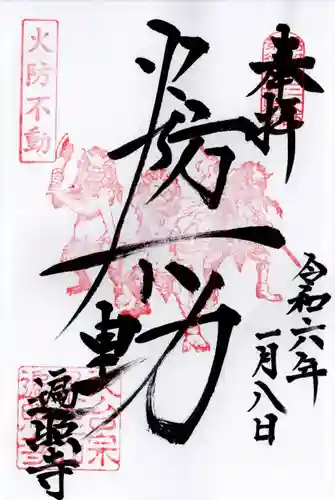 奉拝
令和六年
一月八日
火防不動
火防不動
遍照寺